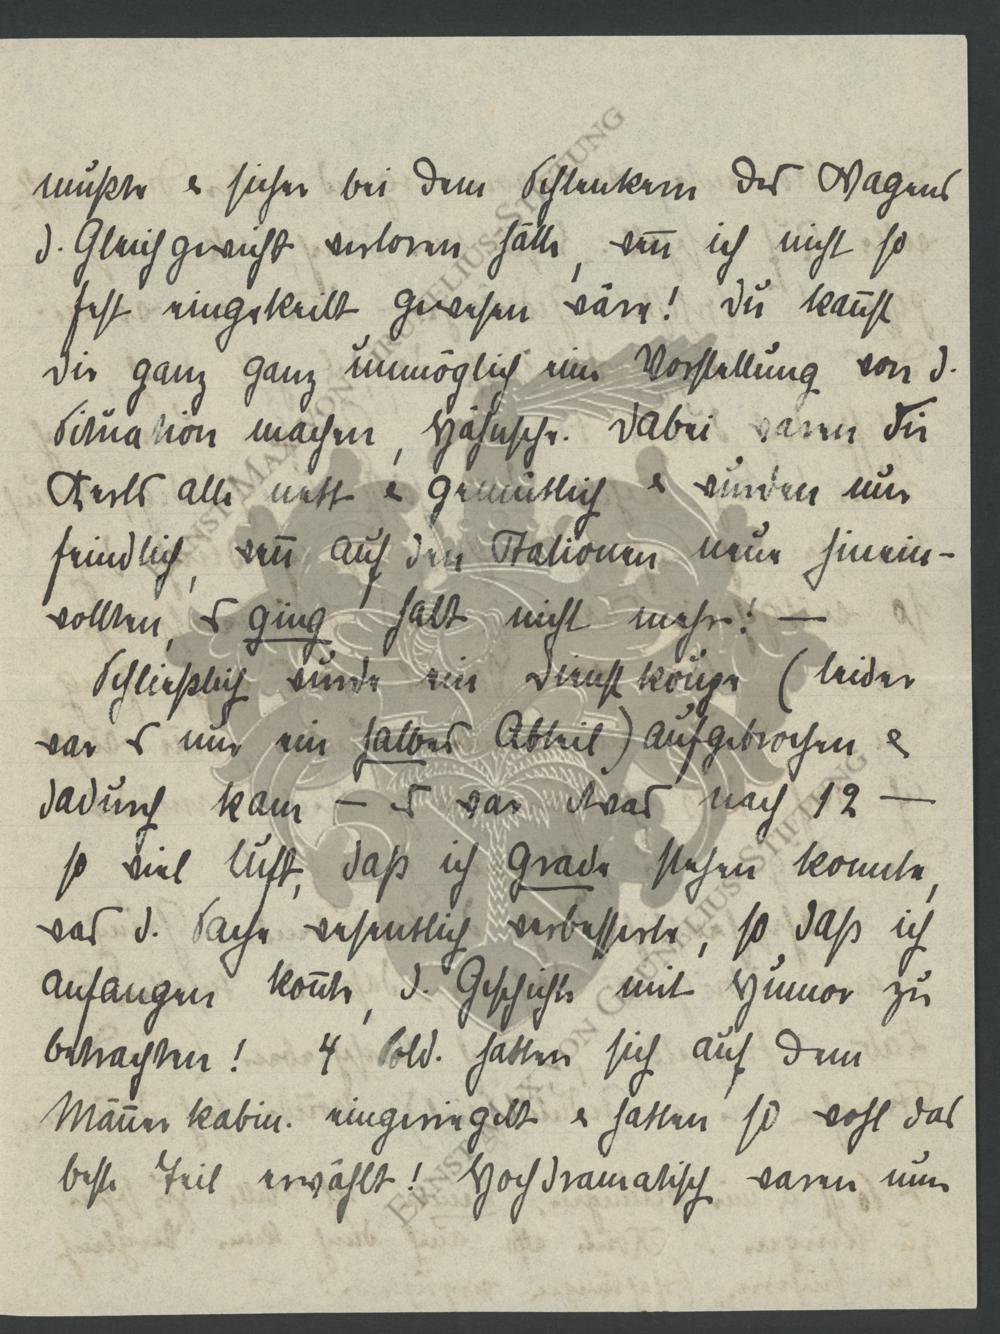 mußte & sicher bei dem Schlenkern des Wagens
d. Gleichgewicht verloren hätte, wen̄ ich nicht so
fest eingekeilt gewesen wäre! Du kan̄st
dir ganz ganz unmöglich eine Vorstellung von d.
Situation machen, Dabei waren die
Kerls alle nett & gemütlich & wurden nur
feindlich, wen̄ auf den Stationen neue hinein-
wollten, es ging halt nicht mehr! —
Schließlich wurde ein Dienstkoupe (leider
war es nur ein halbes Abteil) aufgebrochen &
dadurch kam — es war etwas nach 12 —
so viel Luft, daß ich grade stehen konnte,
was d. Sache wesentlich verbesserte, so daß ich
anfangen kon̄te, d. Geschichte mit Humor zu
betrachten! 4 Sold. hatten sich auf dem
Män̄erkabin. eingeriegelt & hatten so wohl das
beste Teil erwählt! Hochdramatisch waren nun
ERNST MAX VON GRUNELIUS-STIFTUNG
ERNST MAX VON GRUNELIUS-STIFTUNG